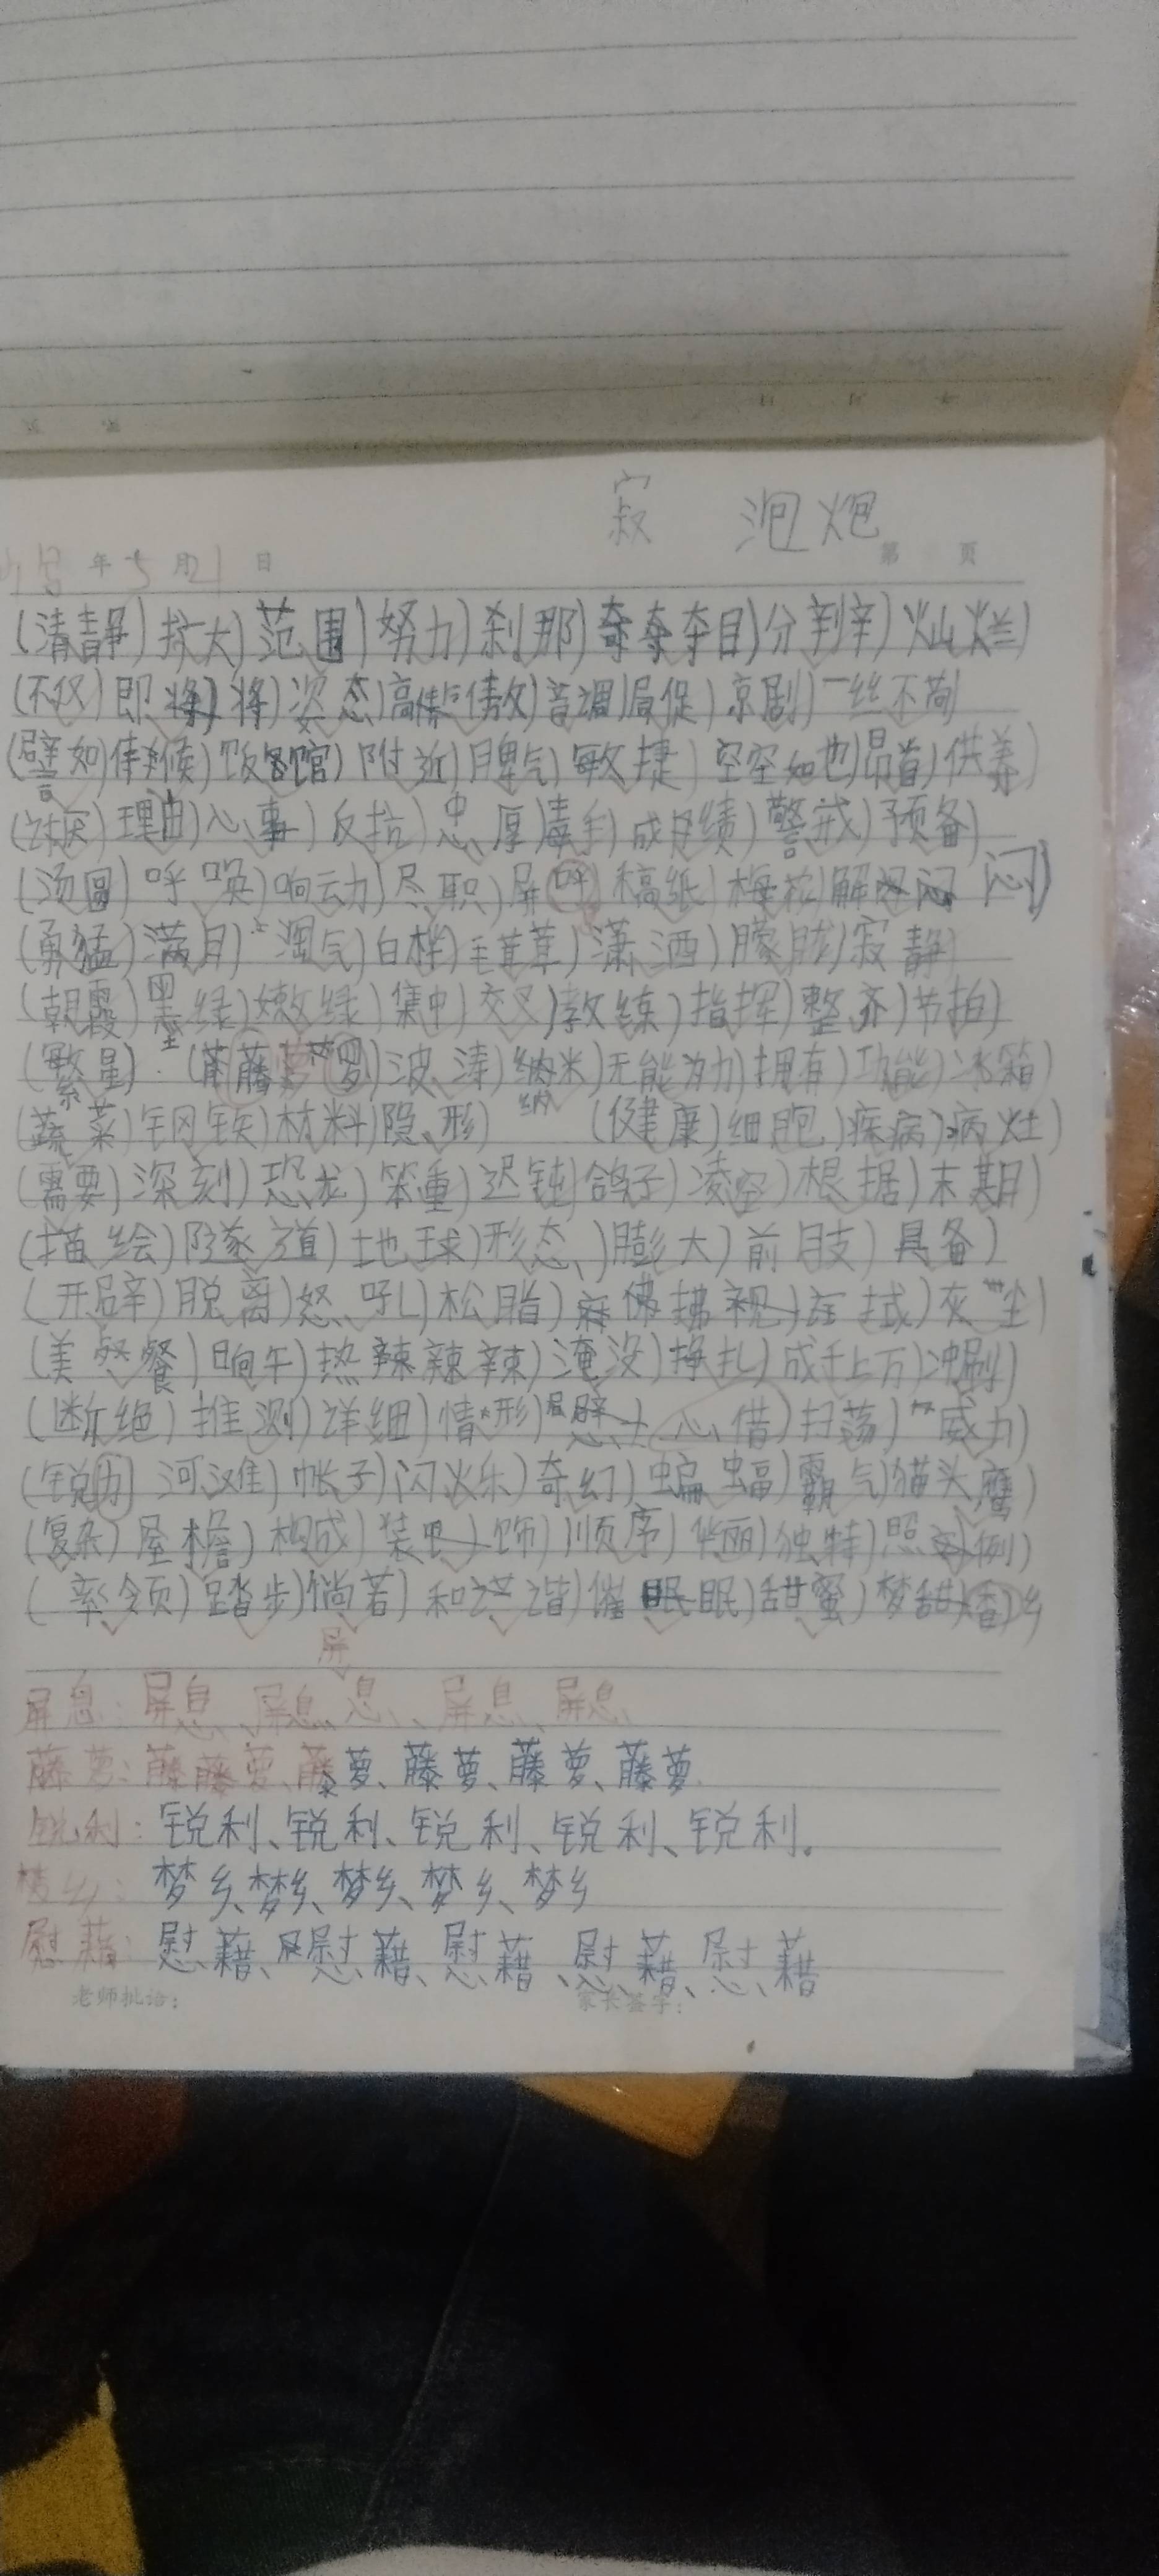 寂 泡 炮
年5月21日 第 页
(清静)扩大)范围)努力)刹那)夺目)分辛)灿烂)
(不仅)即将)姿态)高傲)音调)局促)京剧)一丝不苟
(譬如)候)饭馆)附近)脾气)敏捷)空空如也)昂首)供养)
(讨厌)理由)心事)反抗)忠厚)毒手)成绩)警戒)预备)
(汤圆)呼唤)响动)尽职)屏)稿纸)梅花)解闷 闷)
(勇猛)满月)淘气)白桦)毛茸茸)潇洒)朦胧)寂静)
(朝霞)墨绿)嫩绿)集中)交叉)教练)指挥)整齐)节拍)
(繁星)(藤萝)波涛)纳米)无能为力)拥有)功能)冰箱)
纳
(蔬菜)钢铁)材料)隐形)(健康)细胞)疾病)病灶)
(需要)深刻)恐龙)笨重)迟钝)鸽子)凌空)根据)末期)
(描绘)隧道)地球)形态)膨大)前肢)具备)
(开辟)脱离)怒吼)松脂)拂拭)灰尘)
(美餐)晌午)热辣辣)淹没)挣扎)成千上万)冲刷)
(断绝)推测)详细)情形)借)扫荡)威力)
(锐历)河滩)帐子)闪烁)奇幻)蝙蝠)霸气)猫头鹰)
(复杂)屋檐)构成)装饰)顺序)华丽)独特)照例)
(率领)踏步)倘若)和谐)催眠)甜蜜)梦甜香)乡
屏
屏息:屏息、屏息、息、屏息、屏息、
藤萝:藤藤萝、藤萝、藤萝、藤萝、藤萝
锐利:锐利、锐利、锐利、锐利、锐利。
梦乡:梦乡、梦乡、梦乡、梦乡、梦乡
慰藉:慰藉、慰藉、慰藉、慰藉、慰藉
老师批语: 家长签字: